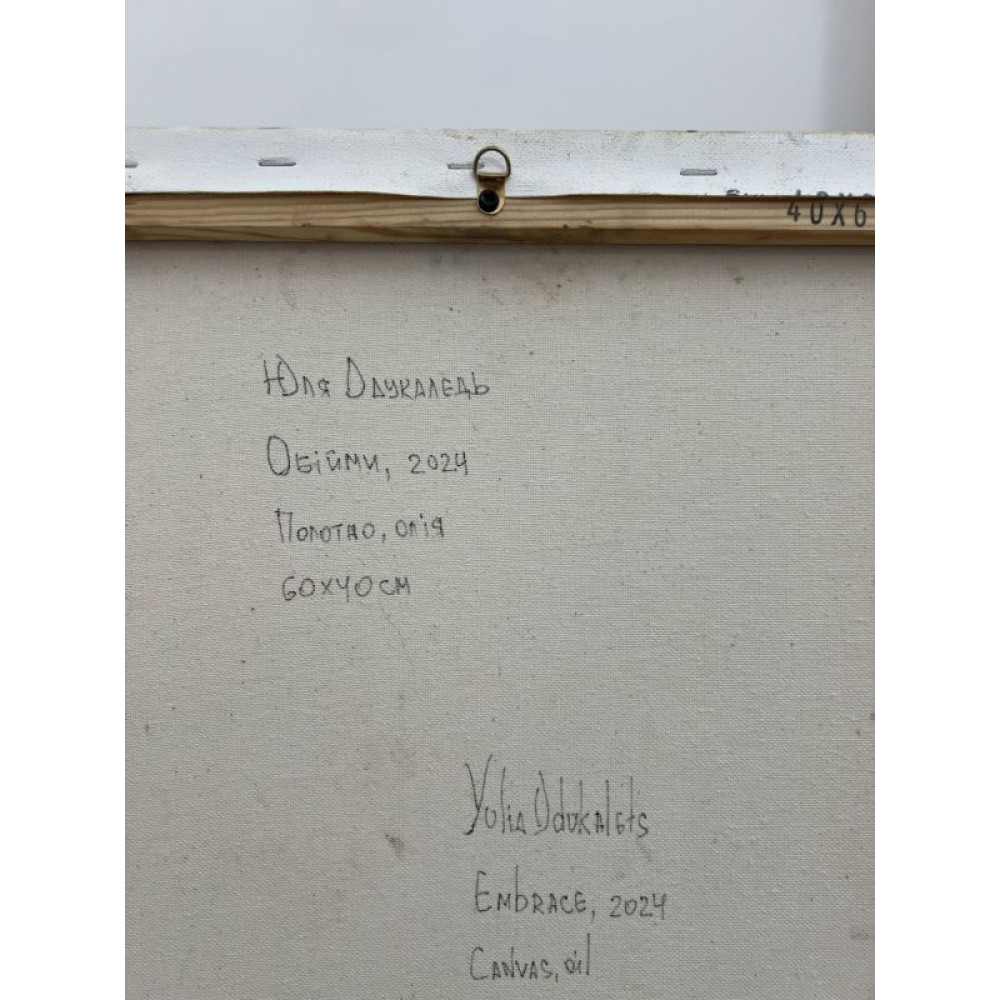 40X6
Юля Одукалець
Обійми, 2024
Полотно, олія
60х40см
Yulia Odukalets
Embrace, 2024
Canvas, oil